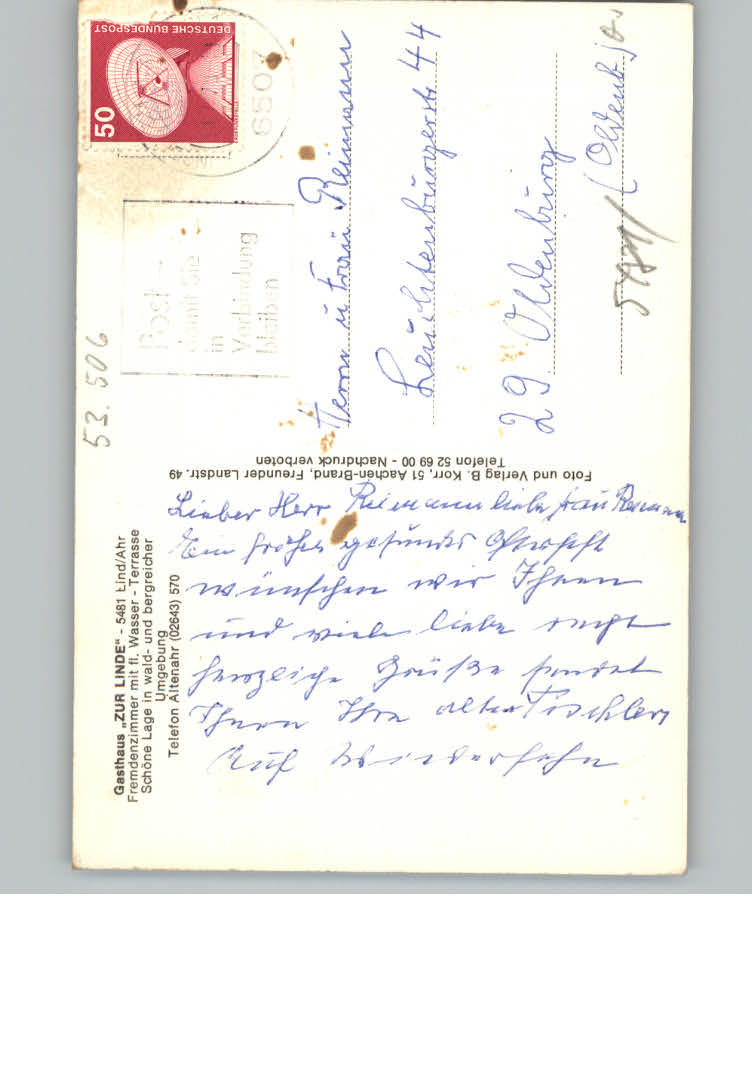 Gasthaus „ZUR LINDE“ - 5481 Lind/Ahr
Fremdenzimmer mit fl. Wasser - Terrasse
Schöne Lage in wald- und bergreicher
Umgebung
Telefon Altenahr (02643) 570
Lieber Herr Reimann liebe Frau Reimann
Ein frohes gesundes Osterfest
wünschen wir Ihnen
und viele liebe recht
herzliche Grüße sendet
Ihnen Ihre alten Tischlers
Auf Wiedersehn
Foto und Verlag B. Korr, 51 Aachen-Brand, Freunder Landstr. 49
Telefon 52 69 00 - Nachdruck verboten
53.506
DEUTSCHE BUNDESPOST
50
6507
Post -
damit Sie
in
Verbindung
bleiben
Herrn u Frau Reimann
Leuchtenburgerstr 44
29 Oldenburg
(Oldenb